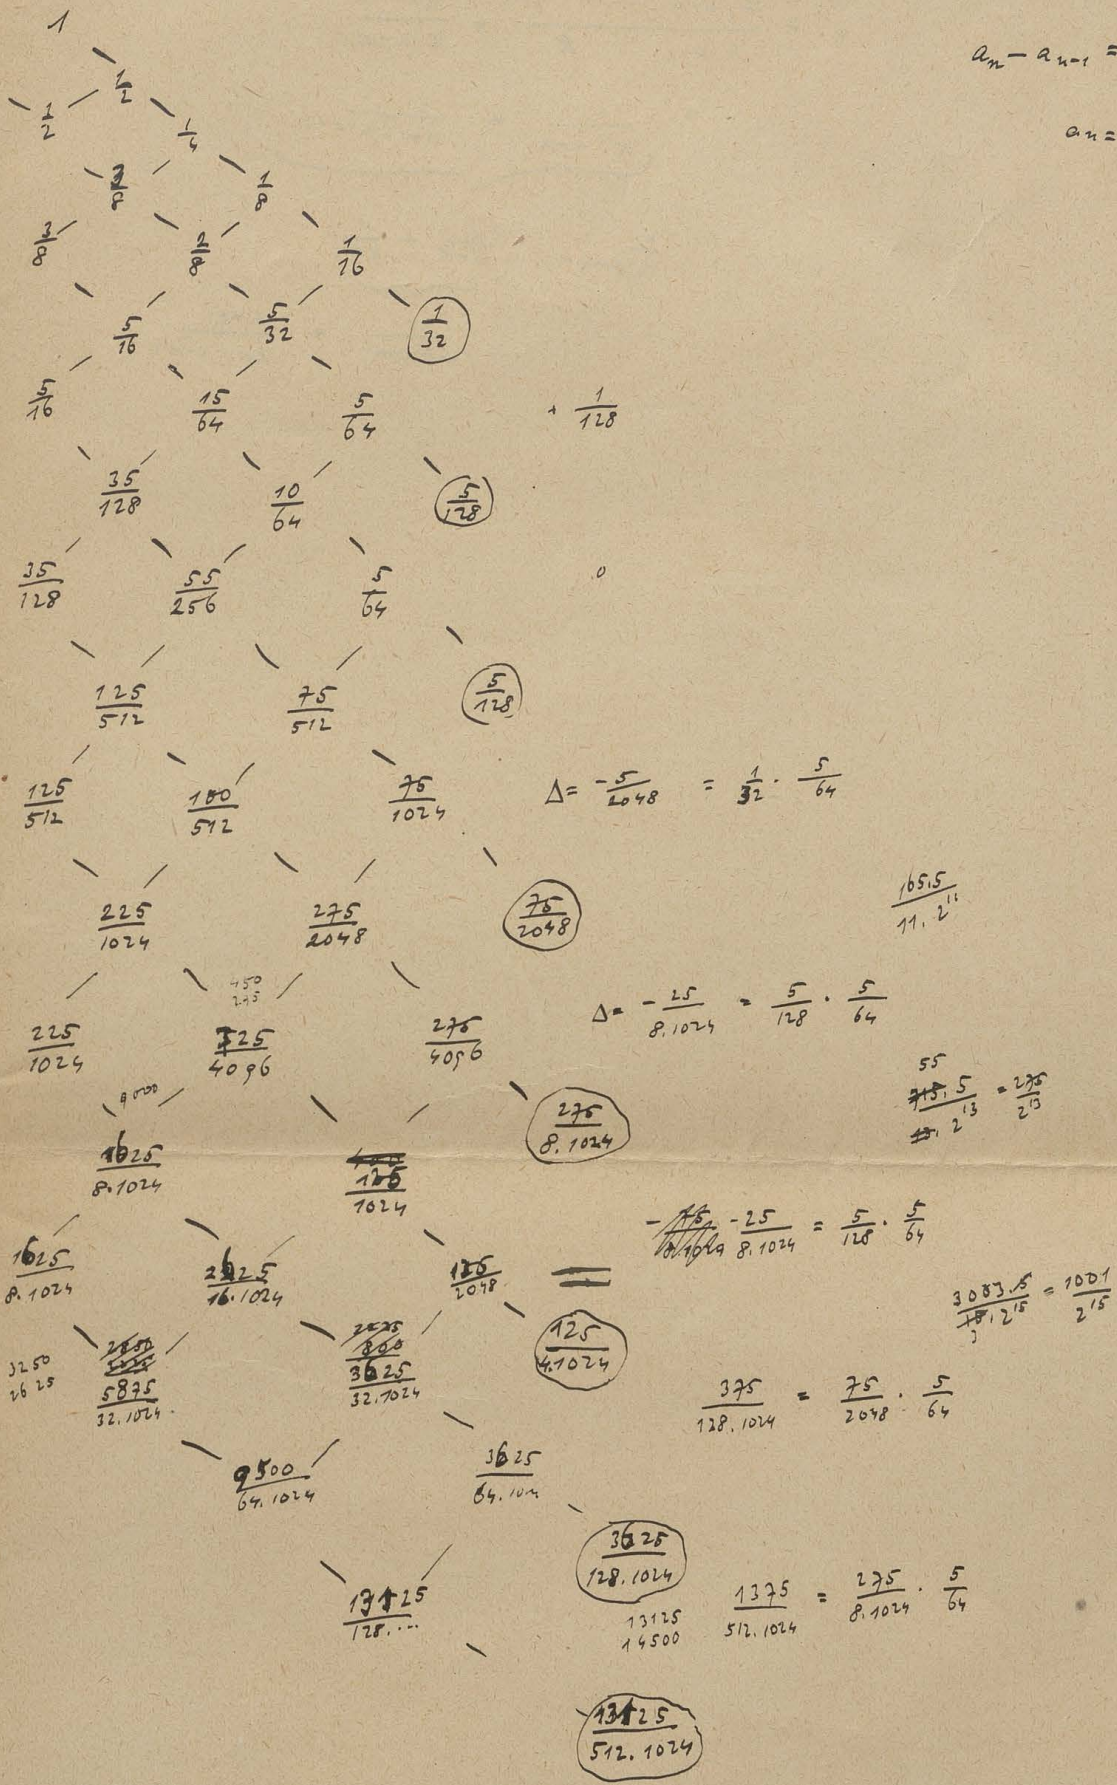 1
a_n − a_{n−1} =
1/2
1/2 1/4
a_n =
3/8 1/8
3/8 2/8 1/16
5/16 5/32 1/32
5/16 15/64 5/64 + 1/128
35/128 10/64 5/128
35/128 55/256 5/64 0
125/512 75/512 5/128
125/512 100/512 75/1024 Δ = −5/2048 = 1/32 · 5/64
225/1024 275/2048 75/2048 165.5/11.2^11
450
275
225/1024 725/4096 275/4096 Δ = −25/8.1024 = 5/128 · 5/64
9000
55
715.5/13.2^13 = 275/2^13
1625/8.1024 125/1024 275/8.1024
−25/8.1024 = 5/128 · 5/64
1625/8.1024 2625/16.1024 125/2048 =
3003.5/15.2^15 = 1001/2^15
3
3250
2625
5875/32.1024 3625/32.1024 125/4.1024
375/128.1024 = 75/2048 · 5/64
9500/64.1024 3625/64.1024
3625/128.1024
13125/128.... 13125
14500
1375/512.1024 = 275/8.1024 · 5/64
13125/512.1024